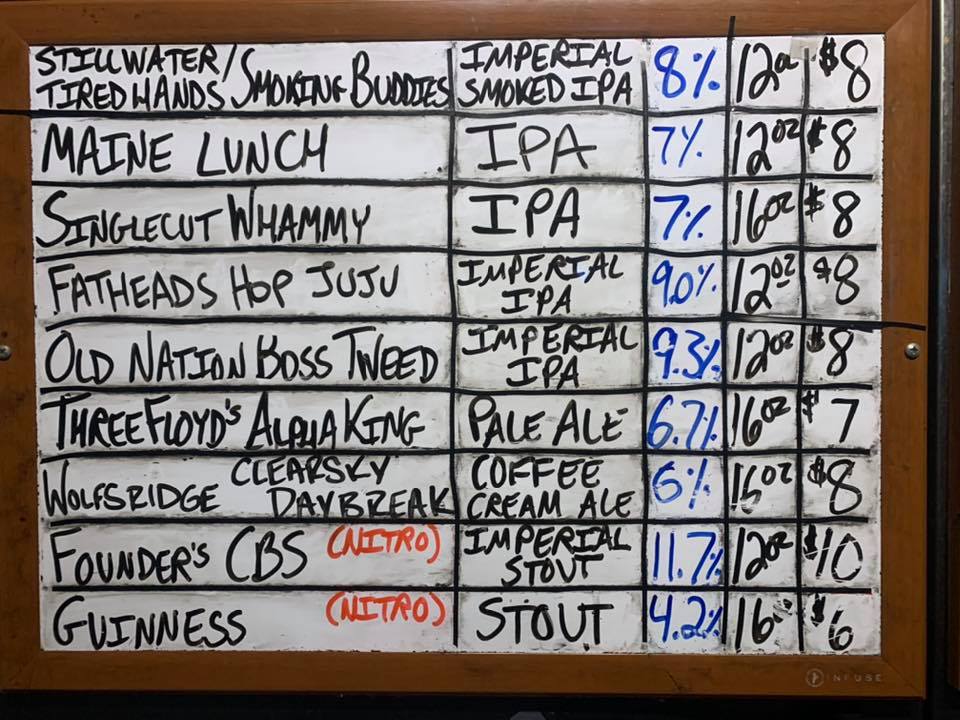 STILLWATER/ TIREDHANDS SMOKING BUDDIES IMPERIAL SMOKED IPA 8% 12oz $8
MAINE LUNCH IPA 7% 12oz $8
SINGLECUT WHAMMY IPA 7% 16oz $8
FATHEADS HOP JUJU IMPERIAL IPA 9.0% 12oz $8
OLD NATION BOSS TWEED IMPERIAL IPA 9.3% 12oz $8
THREE FLOYD'S ALPHA KING PALE ALE 6.7% 16oz $7
WOLFSRIDGE CLEARSKY DAYBREAK COFFEE CREAM ALE 6% 16oz $8
FOUNDER'S CBS (NITRO) IMPERIAL STOUT 11.7% 12oz $10
GUINNESS (NITRO) STOUT 4.2% 16 $6
INFUSE